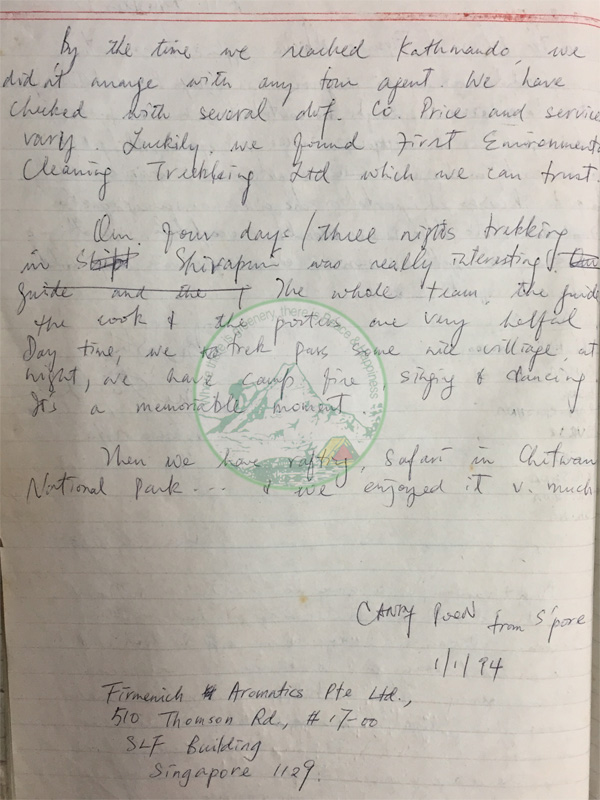 By the time we reached Kathmando, we
did'nt arrange with any tour agent. We have
checked with several dif. Co. Price and service
vary. Luckily, we found First Environmental
Cleaning Trekking Ltd which we can trust.
Our four days / three nights trekking
in Shivapuri was really interesting.
guide and the The whole team, the guide
the cook & the porters are very helful
Day time, we trek pass some nice village, at
night, we have camp fire, singing & dancing.
It's a memorable moment
Then we have rafting, safari in Chitwan
National Park ... & we enjoyed it v. much
where there is Scenery, there is Peace & Happiness
CANDY POON from S'pore
1/1/94
Firmenich Aromatics Pte Ltd.,
510 Thomson Rd., # 17-00
SLF Building
Singapore 1129.